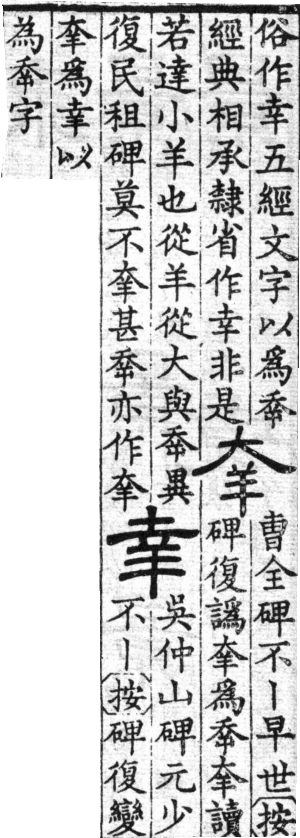 俗作幸五經文字以爲𡴘
經典相承隸省作幸非是
羍
曹全碑不丨早世〔按〕
碑復譌羍爲𡴘羍讀
若達小羊也從羊從大與𡴘異
復民租碑莫不羍甚𡴘亦作羍
幸
吳仲山碑元少
不丨〔按〕碑復變
羍爲幸以
為𡴘字